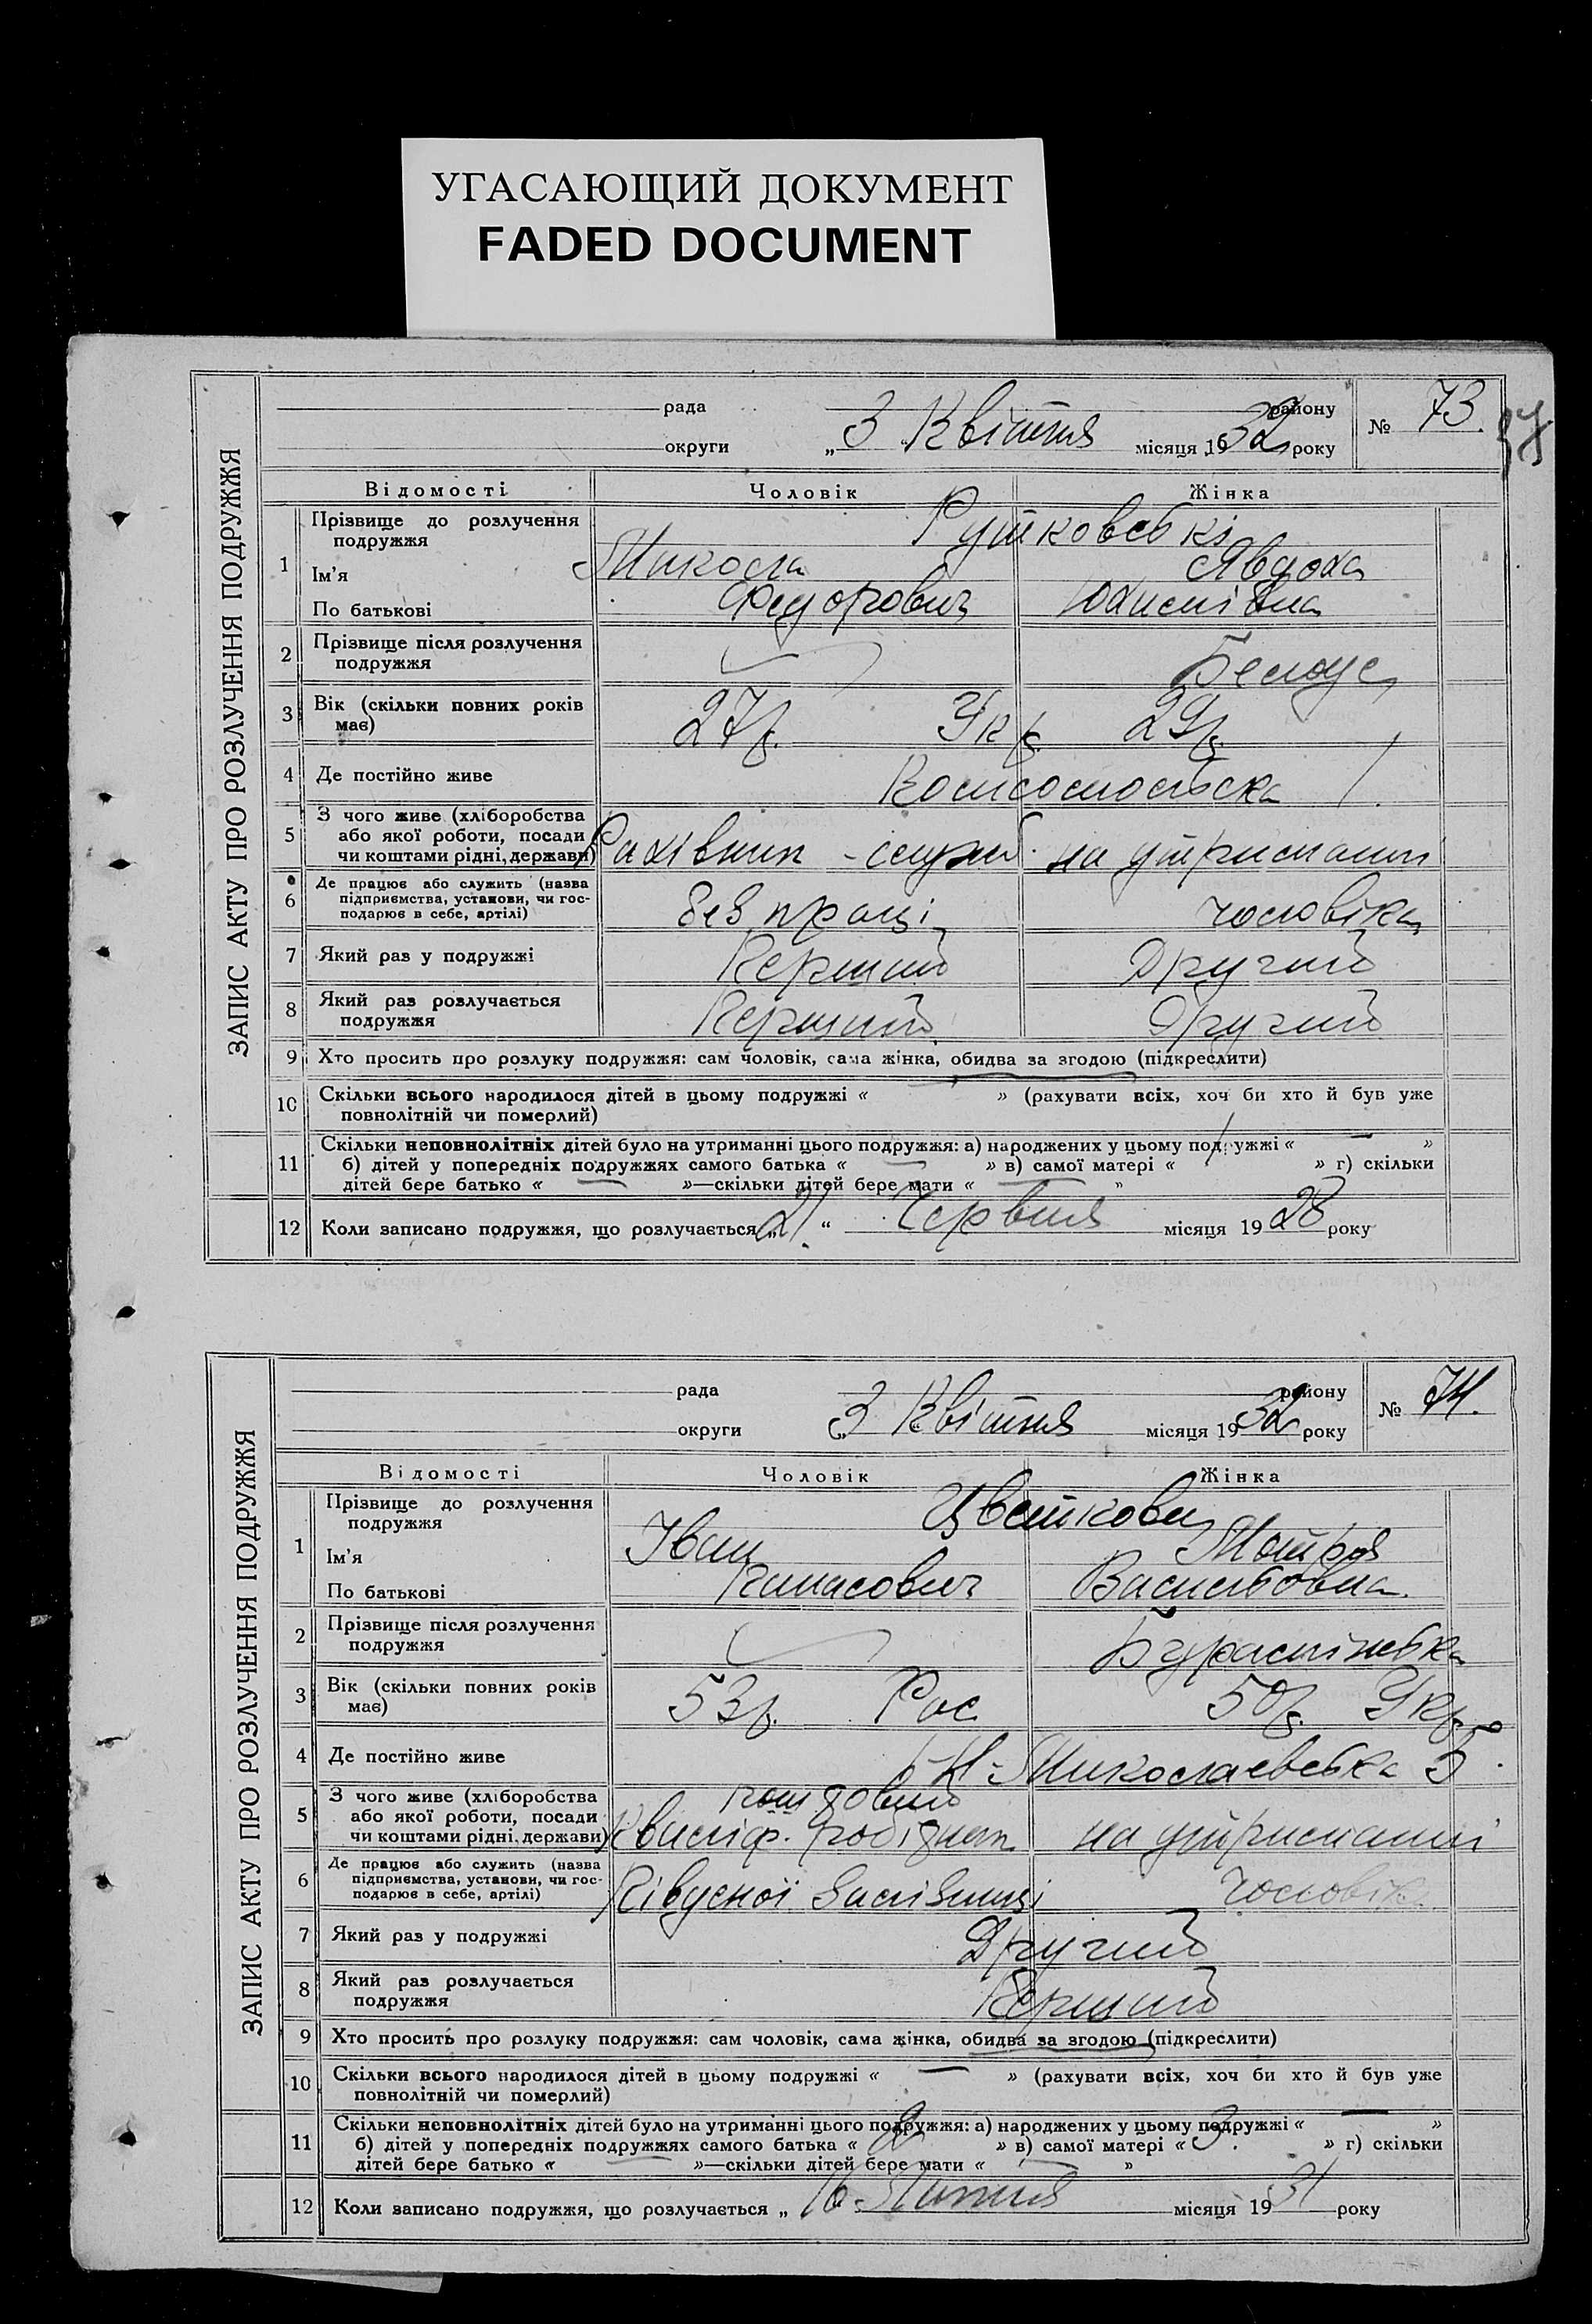 УГАСАЮЩИЙ ДОКУМЕНТ
FADED DOCUMENT
ЗАПИС АКТУ ПРО РОЗЛУЧЕННЯ ПОДРУЖЖЯ
рада району № 73.
37
округи „3 Квітня місяця 1932 року
Відомості Чоловік Жінка
1 Прізвище до розлучення подружжя Рутковські
Ім’я Микола Явдоха
По батькові Федорович Юхимівна
2 Прізвище після розлучення
подружжя Белоус
3 Вік (скільки повних років
має) 27р. Укр. 29р.
4 Де постійно живе Комсомольска 1.
5 З чого живе (хліборобства
або якої роботи, посади
чи коштами рідні, держави) Рахівник - служб. на утриманні
6 Де працює або служить (назва
підприємства, установи, чи гос-
подарює в себе, артілі) без праці чоловіка
7 Який раз у подружжі Перший Другий
8 Який раз розлучається
подружжя Перший Другий
9 Хто просить про розлуку подружжя: сам чоловік, сама жінка, обидва за згодою (підкреслити)
10 Скільки всього народилося дітей в цьому подружжі « » (рахувати всіх, хоч би хто й був уже
повнолітній чи померлий)
11 Скільки неповнолітніх дітей було на утриманні цього подружжя: а) народжених у цьому подружжі « — »
б) дітей у попередніх подружжях самого батька « — » в) самої матері « 1 » г) скільки
дітей бере батько « — »—скільки дітей бере мати « — »
12 Коли записано подружжя, що розлучається „21“ Червня місяця 1928 року
ЗАПИС АКТУ ПРО РОЗЛУЧЕННЯ ПОДРУЖЖЯ
рада району № 74.
округи „3 Квітня місяця 1932 року
Відомості Чоловік Жінка
1 Прізвище до розлучення
подружжя Цветкови
Ім’я Іван Мотря
По батькові Панасович Васильовна
2 Прізвище після розлучення
подружжя
3 Вік (скільки повних років
має) 53р. Рос 50р. Укр.
4 Де постійно живе Н-Миколаевська 5.
5 З чого живе (хліборобства
або якої роботи, посади
чи коштами рідні, держави) Кваліф. робітник на утриманні
6 Де працює або служить (назва
підприємства, установи, чи гос-
подарює в себе, артілі) Південої Залізниці чоловіка
7 Який раз у подружжі Другий
8 Який раз розлучається
подружжя Перший
9 Хто просить про розлуку подружжя: сам чоловік, сама жінка, обидва за згодою (підкреслити)
10 Скільки всього народилося дітей в цьому подружжі « — » (рахувати всіх, хоч би хто й був уже
повнолітній чи померлий)
11 Скільки неповнолітніх дітей було на утриманні цього подружжя: а) народжених у цьому подружжі « — »
б) дітей у попередніх подружжях самого батька « 2 » в) самої матері « 3. » г) скільки
дітей бере батько « — »—скільки дітей бере мати « — »
12 Коли записано подружжя, що розлучається „ 16 Липня місяця 1931 року